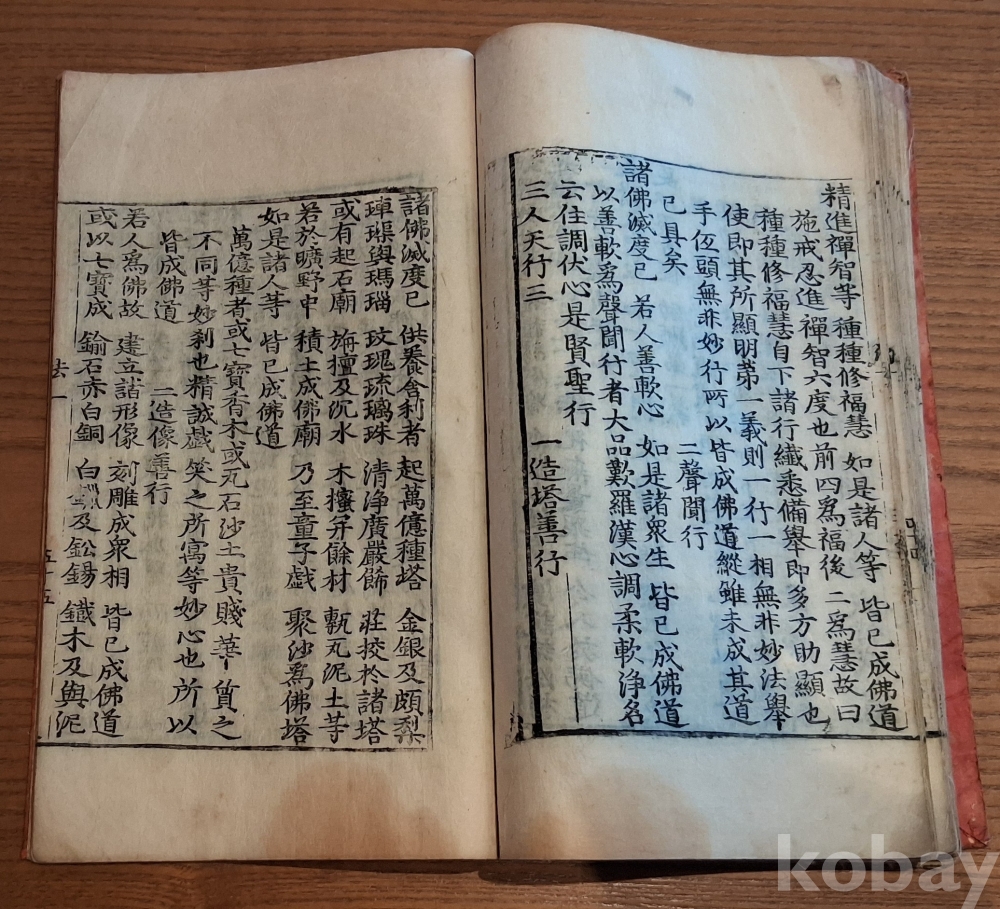 精進禪智等 種種修福慧 如是諸人等 皆已成佛道
施戒忍進禪智六度也前四爲福後二爲慧故曰
種種修福慧自下諸行纖悉備舉即多方助顯也
使即其所顯明第一義則一行一相無非妙法舉
手伍頭無非妙行所以皆成佛道縱雖未成其道
已具矣 二聲聞行
諸佛滅度已 若人善軟心 如是諸衆生 皆已成佛道
以善軟爲聲聞行者大品歎羅漢心調柔軟淨名
云住調伏心是賢聖行
三人天行三 一造塔善行
諸佛滅度已 供養舍利者 起萬億種塔 金銀及頗梨
硨磲與瑪瑙 玫瑰琉璃珠 清淨廣嚴飾 莊挍於諸塔
或有起石廟 旃檀及沉水 木櫁并餘材 甎瓦泥土等
若於曠野中 積土成佛廟 乃至童子戱 聚沙爲佛塔
如是諸人等 皆已成佛道
萬億種者或七寶香木或瓦石沙土貴賤華質之
不同等妙刹也精誠戱笑之所寓等妙心也所以
皆成佛道 二造像善行
若人爲佛故 建立諸形像 刻雕成衆相 皆已成佛道
或以七寶成 鍮石赤白銅 白鑞及鈆錫 鐵木及與泥
法一
五十五
kobay